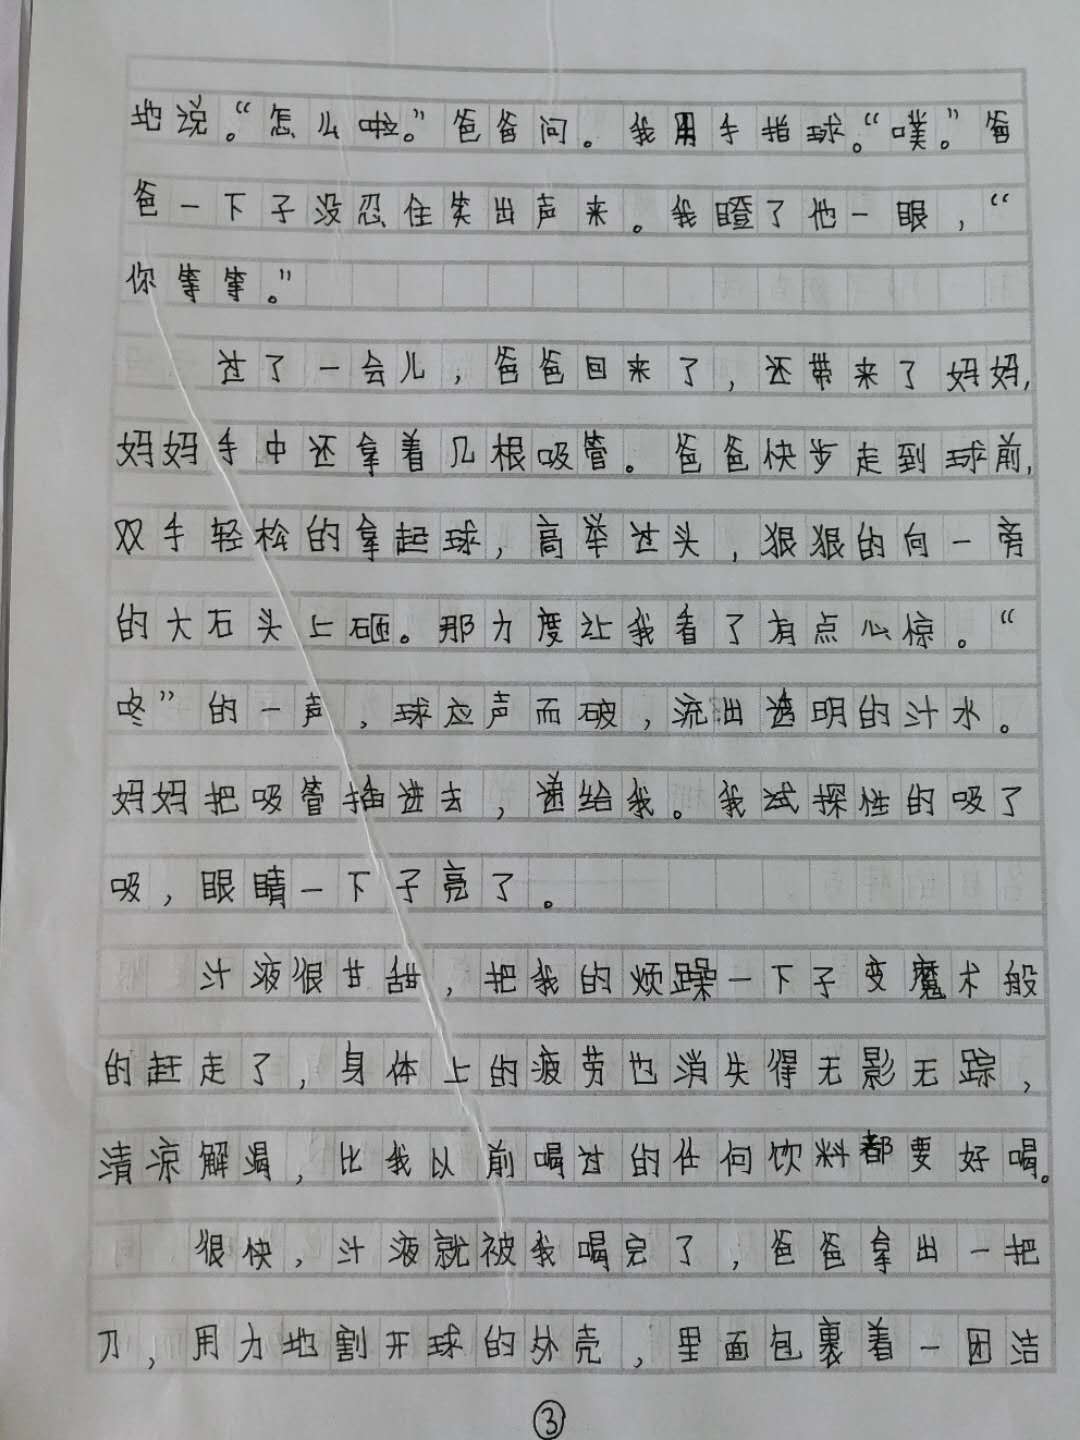 地说。“怎么啦。”爸爸问。我用手指球。“噗。”爸
爸一下子没忍住笑出声来。我瞪了他一眼，“
你等等。”
过了一会儿，爸爸回来了，还带来了妈妈，
妈妈手中还拿着几根吸管。爸爸快步走到球前，
双手轻松的拿起球，高举过头，狠狠的向一旁
的大石头上砸。那力度让我看了有点心惊。“
咚”的一声，球应声而破，流出透明的汁水。
妈妈把吸管插进去，递给我。我试探性的吸了
吸，眼睛一下子亮了。
汁液很甘甜，把我的烦躁一下子变魔术般
的赶走了，身体上的疲劳也消失得无影无踪，
清凉解渴，比我以前喝过的任何饮料都要好喝。
很快，汁液就被我喝完了，爸爸拿出一把
刀，用力地割开球的外壳，里面包裹着一团洁
③